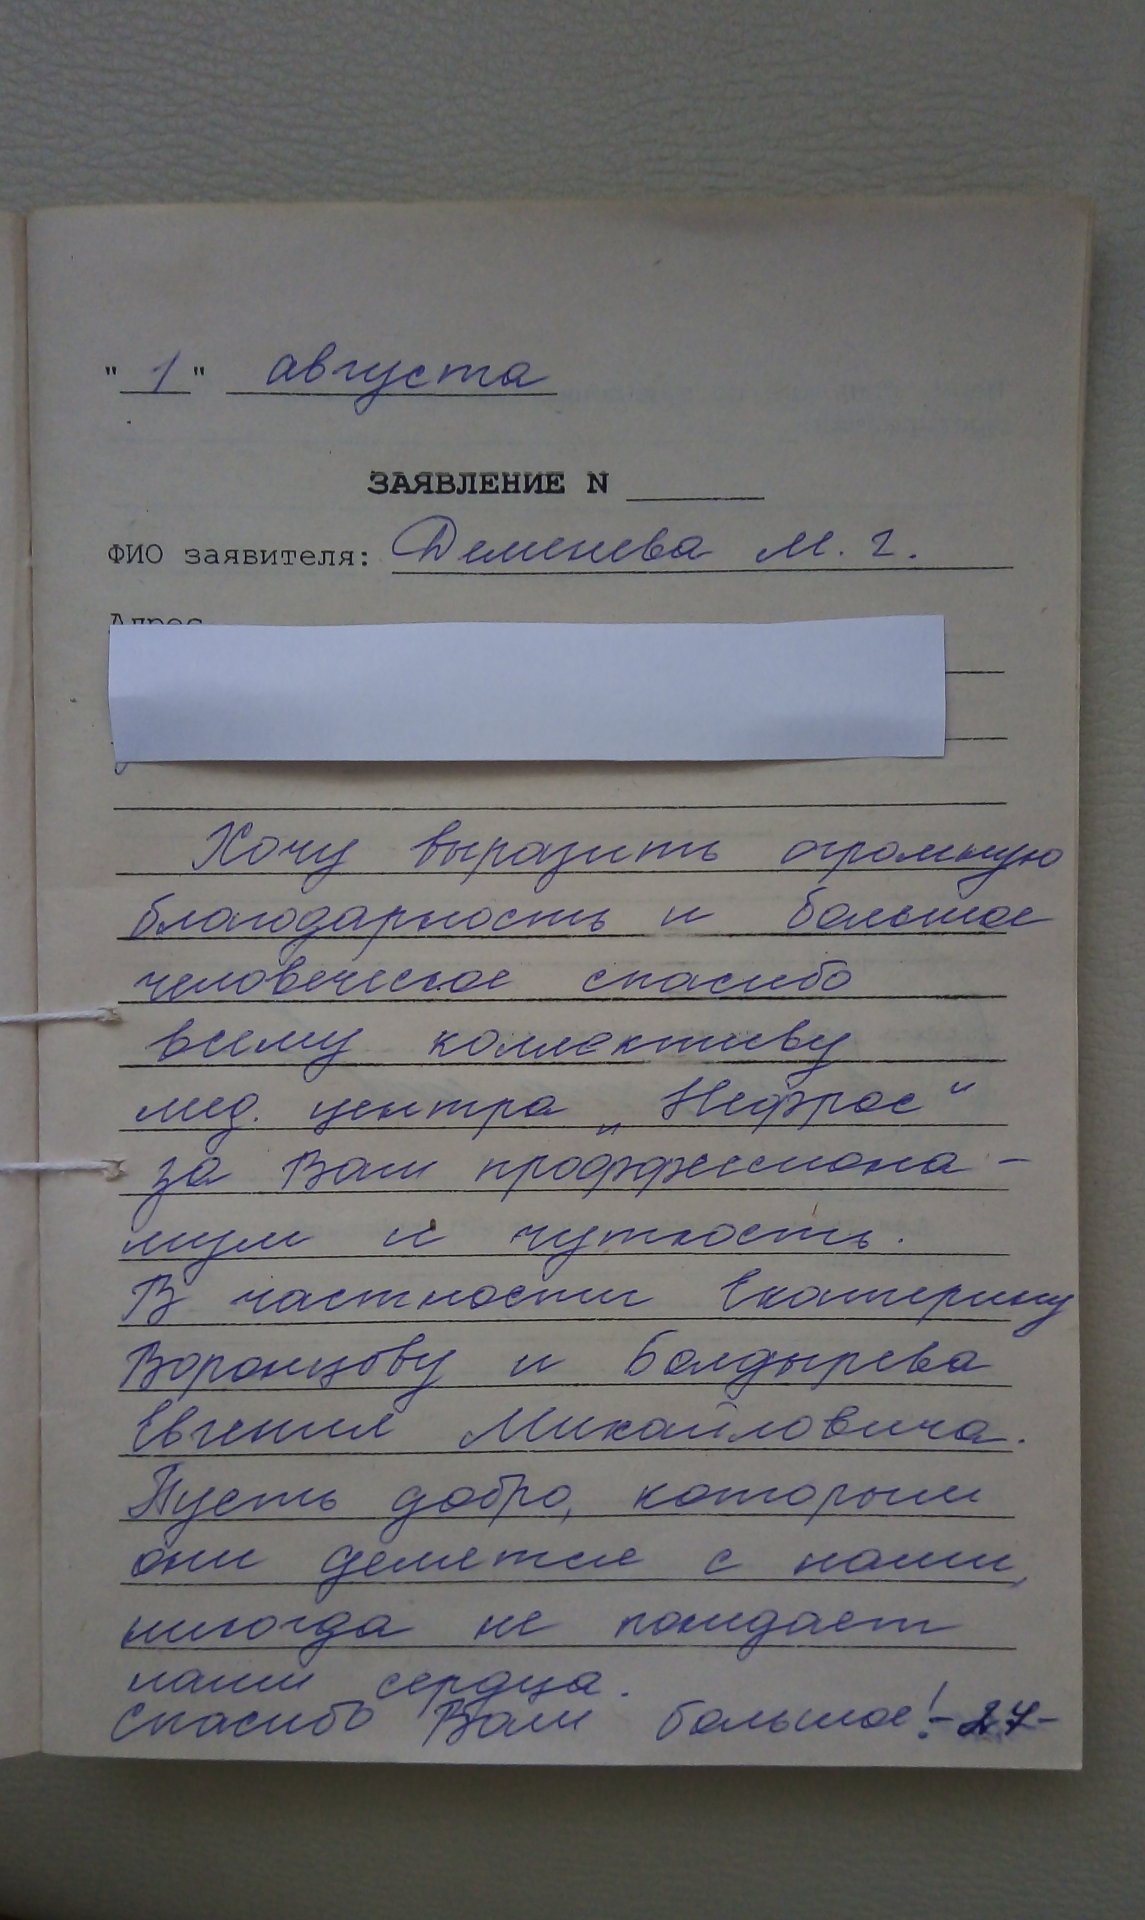 "1" августа
ЗАЯВЛЕНИЕ N
ФИО заявителя: Деменева М. Г.
Адрес
Хочу выразить огромную
благодарность и большое
человеческое спасибо
всему коллективу
мед. центра „Нефрос“
за Ваш проффессиона-
лизм и чуткость.
В частности Екатерину
Воронцову и Болдырева
Евгения Михайловича.
Пусть добро, которым
они делятся с нами,
никогда не покидает
наши сердца.
Спасибо Вам большое! -27-